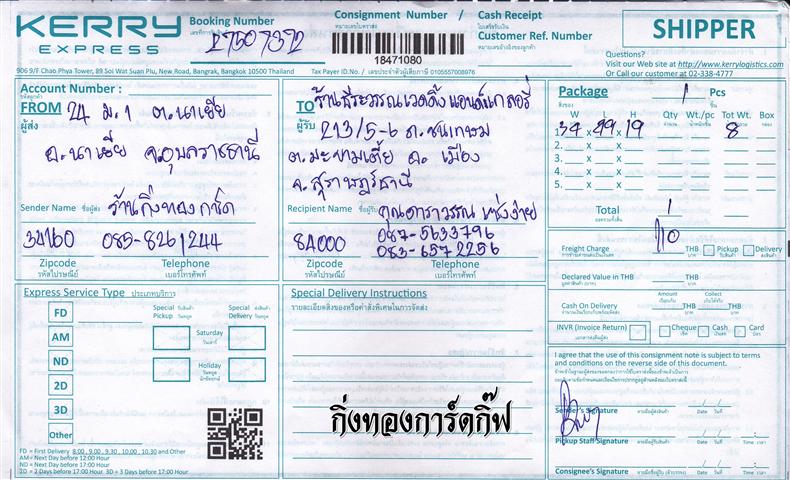 KERRY
EXPRESS
Booking Number
Consignment Number /
18471080
Cash Receipt
ใบเสร็จรับเงิน
Customer Ref. Number
หมายเลขอ้างอิงของลูกค้า
SHIPPER
Questions?
Visit our Web site at http://www.kerrylogistics.com
Or Call our customer at 02-338-4777
906 9/F Chao Phya Tower, 89 Soi Wat Suan Plu, New Road, Bangrak, Bangkok 10500 Thailand
Tax Payer ID.No. / เลขประจำตัวผู้เสียภาษี 0105557008976
Account Number :
FROM 24 ม.1 ต.นาเยีย
ผู้ส่ง
อ.นาเยีย จ.อุบลราชธานี
Sender Name ชื่อผู้ส่ง ร้านกิ่งทองการ์ด
34160 085-8261244
Zipcode Telephone
รหัสไปรษณีย์ เบอร์โทรศัพท์
TO ร้านธีระวรรณเวดดิ้งแอนด์แกลอรี่
ผู้รับ 213/5-6 ถ.ชนเกษม
ต.มะขามเตี้ย อ.เมือง
จ.สุราษฎร์ธานี
Recipient Name ชื่อผู้รับ คุณดาราวรรณ
087-5633796
84000 083-6572256
Zipcode Telephone
รหัสไปรษณีย์ เบอร์โทรศัพท์
Package 1 Pcs
สิ่งของ ชิ้น
W L H Qty Wt./pc Tot Wt. Box
1. x x 19 8
2. x x
3. x x
4. x x
5. x x
Total 1
Freight Charge 110 THB Pickup Delivery
Declared Value in THB THB
Amount Collect
Cash On Delivery THB THB
INVR (Invoice Return) Cheque Cash Card
I agree that the use of this consignment note is subject to terms
and conditions on the reverse side of this document.
Sender's Signature Date Time
Pickup Staff Signature Date Time
Consignee's Signature Date Time
Express Service Type ประเภทบริการ
FD
AM
ND
2D
3D
Other
Special Pickup Special Delivery
Saturday
วันเสาร์
Holiday
วันหยุดนักขัตฤกษ์
FD = First Delivery 8.00 , 9.00 , 9.30 , 10.00 , 10.30 and Other
AM= Next Day before 12:00 Hour
ND = Next Day before 17:00 Hour
2D = 2 Days before 17:00 Hour 3D = 3 Days before 17:00 Hour
Special Delivery Instructions
รายละเอียดสิ่งของหรือคำสั่งพิเศษในการจัดส่ง
กิ่งทองการ์ดกิ๊ฟ